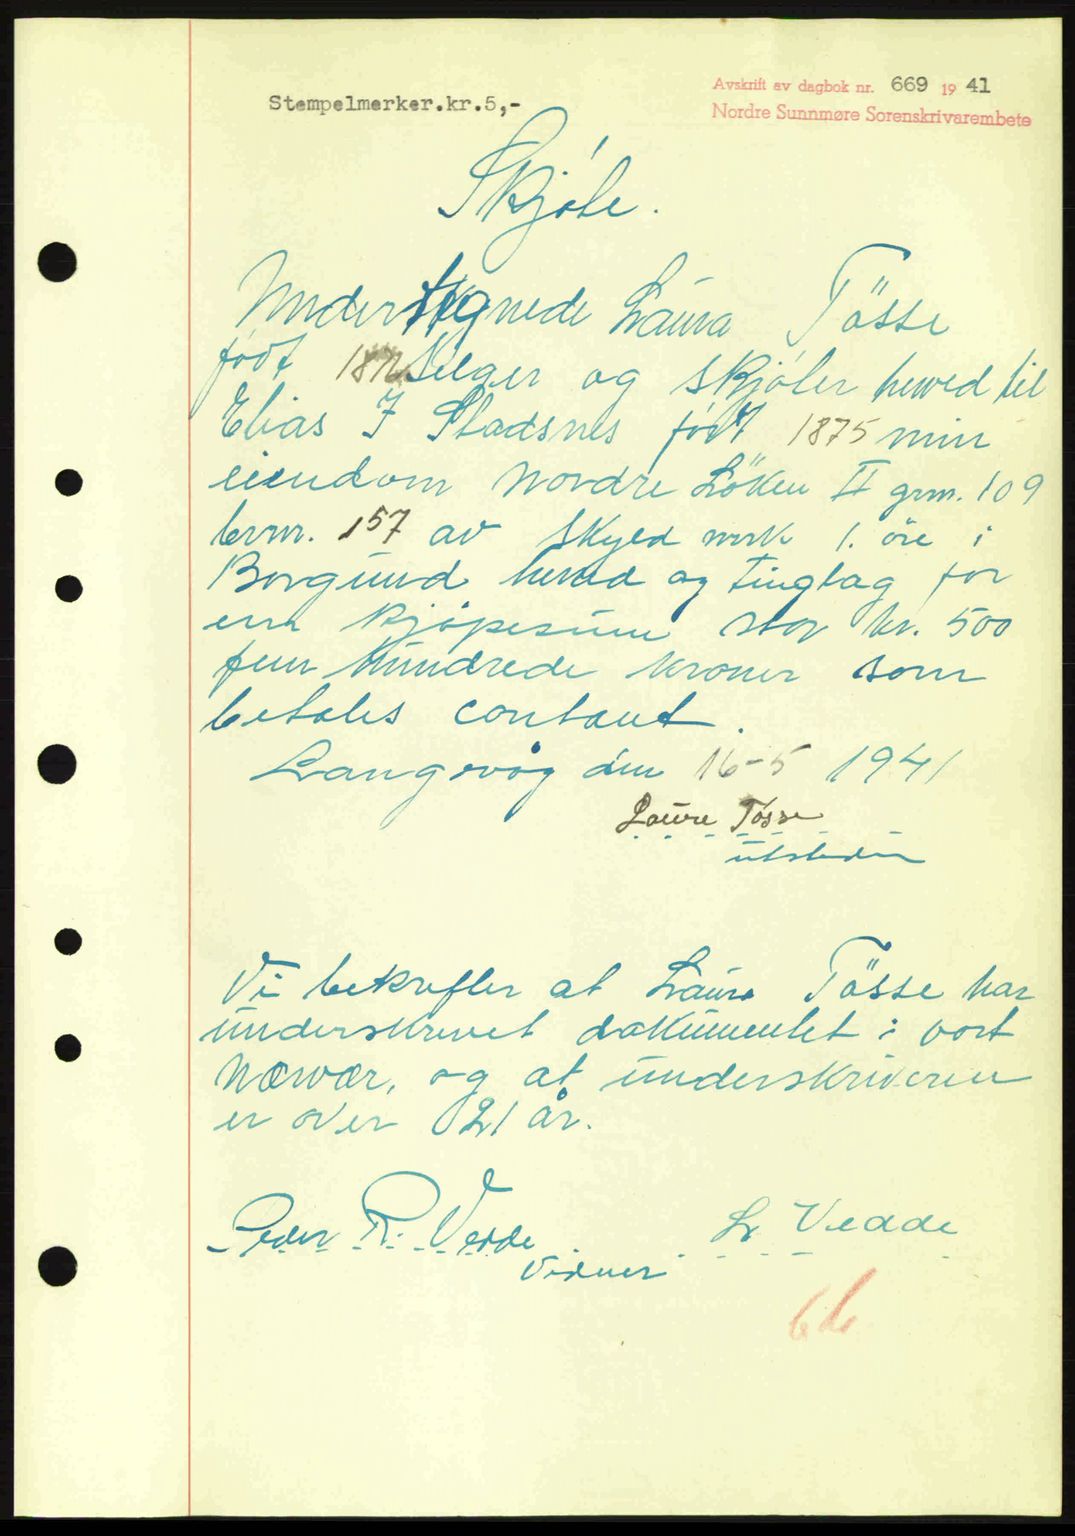 Avskrift av dagbok nr. 669 1941
Stempelmerker.kr.5,-
Nordre Sunnmøre Sorenskrivarembete
Skjöte.
Undertegnede Laura Tösse
født selger og skjöter herved til
Elias I Stadsnes født 1875 min
eiendom Nordre Löken II grnr. 109
brnr. 157 av skyld mrk 1. öre i
Borgund herad og tinglag for
en kjöpesum stor kr. 500
fem hundrede kroner som
betales contant.
Langevåg den 16-5 1941
Laura Tösse
utsteder
Vi bekrefter at Laura Tösse har
underskrevet dokumentet i vort
Nærvær, og at underskriveren
er over 21 år.
Peder R. Vedde L. Vedde
Vidner